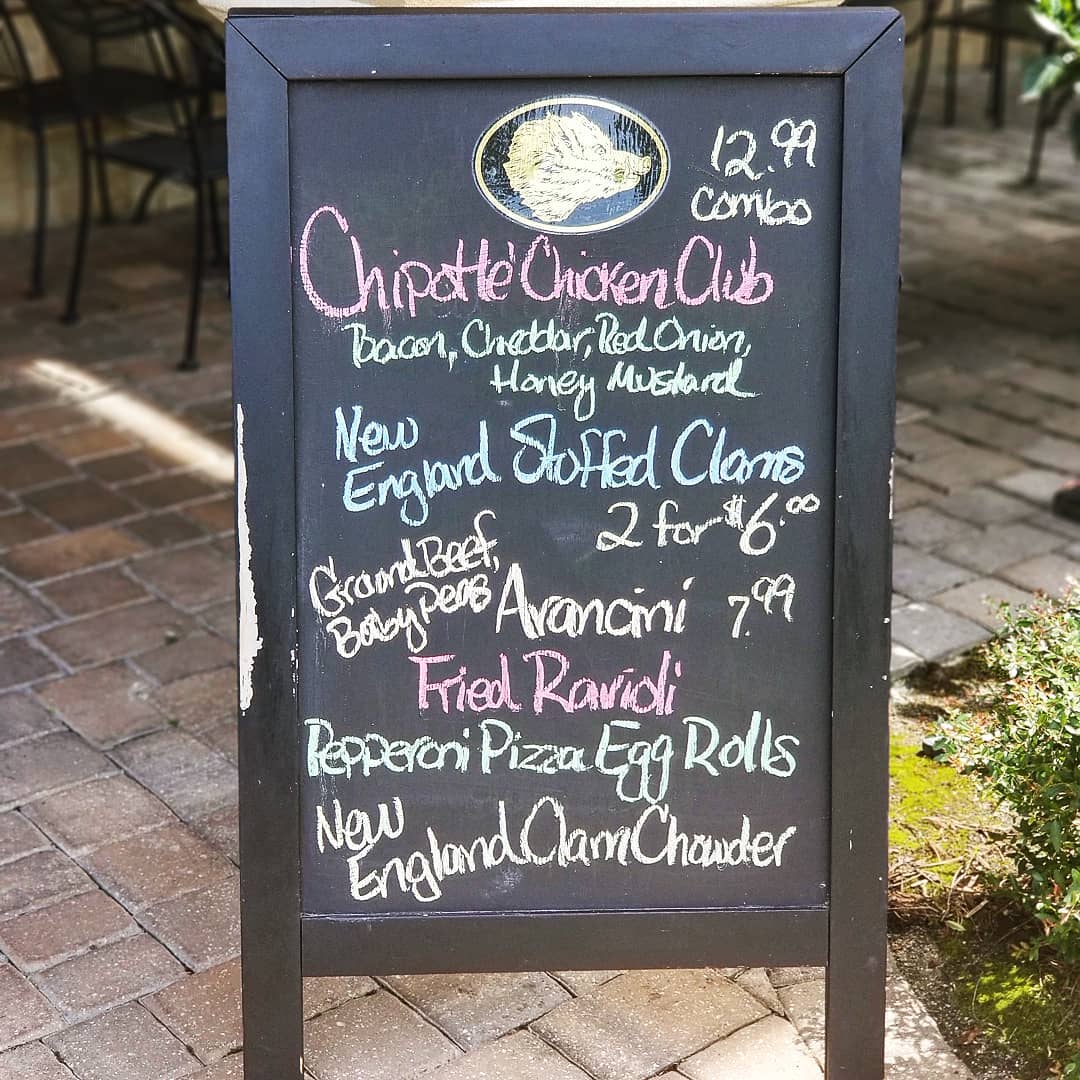 12.99
Combo
Chipotle Chicken Club
Bacon, Cheddar, Red Onion,
Honey Mustard
New
England Stuffed Clams
2 for $6.00
Ground Beef,
Baby Peas Arancini 7.99
Fried Ravioli
Pepperoni Pizza Egg Rolls
New
England Clam Chowder